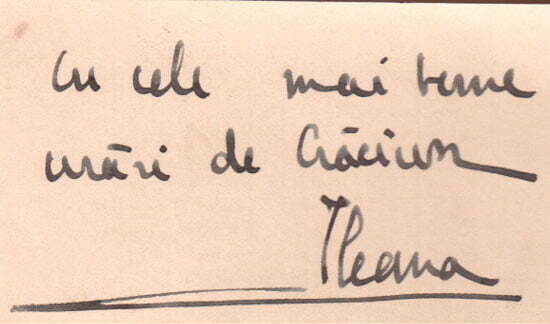 Cu cele mai bune
urări de Crăciun
Ileana